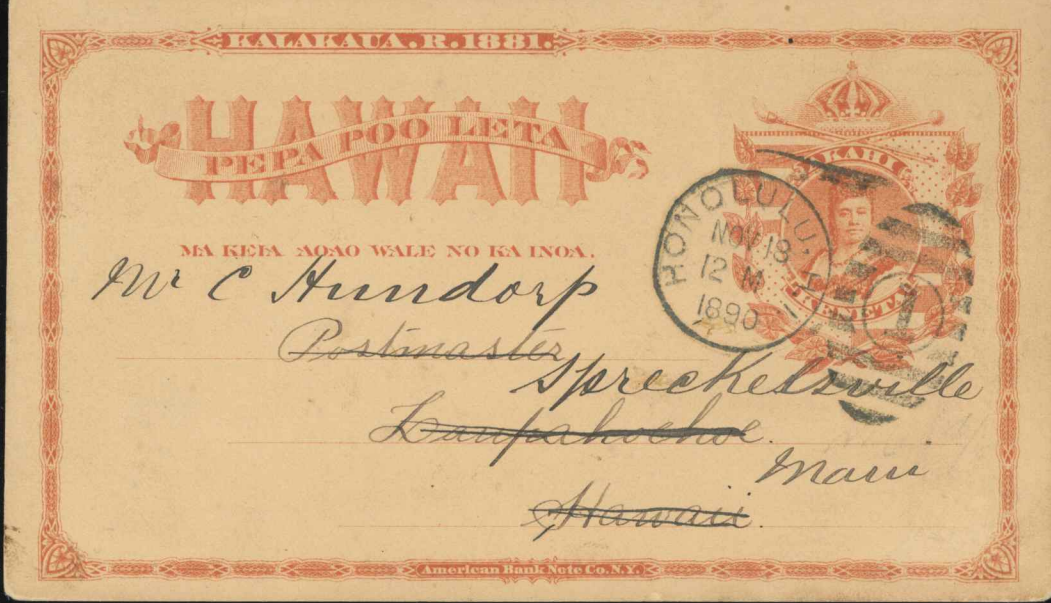 KALAKAUA.R.1881.
HAWAII
PEPA POO LETA
MA KEIA AOAO WALE NO KA INOA.
KAHI
KENETA
HONOLULU. H. I.
NOV 18
12 M
1890
1
Mr C Hundorp
Postmaster
Spreckelsville
Laupahoehoe.
Maui
Hawaii.
American Bank Note Co. N.Y.